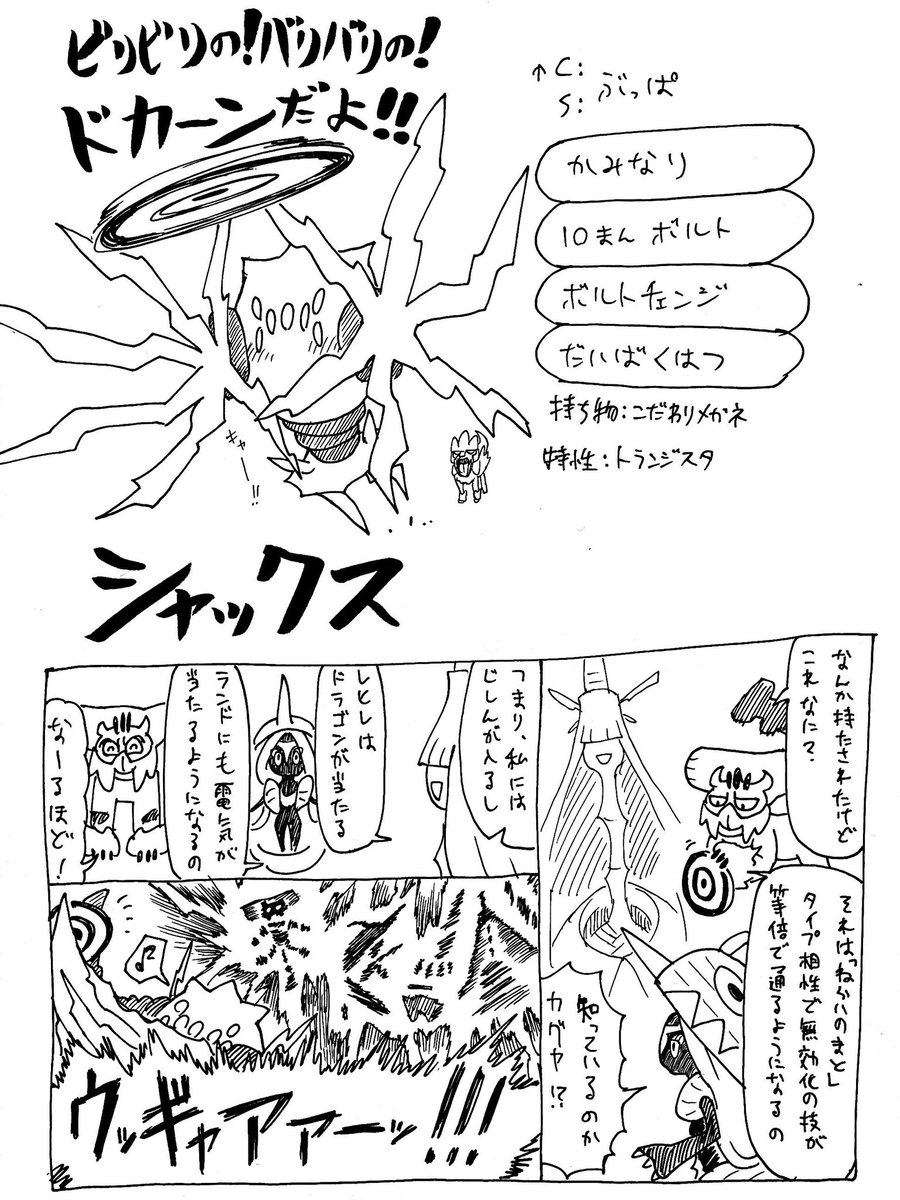 ビリビリの!バリバリの!
ドカーンだよ!!
↑C:
S:ぶっぱ
かみなり
10まんボルト
ボルトチェンジ
だいばくはつ
持ち物:こだわりメガネ
特性:トランジスタ
ギャー!!
シャックス
なんか持たされたけど
これなに?
それは「ねらいのまと」
タイプ相性で無効化の技が
等倍で通るようになるの
知っているのか
カグヤ!?
つまり、私には
じしんが入るし
レヒレには
ドラゴンが当たる
ランドにも電気が
当たるようになるの
なーるほど!
♪
ウッギャアァーッ!!!